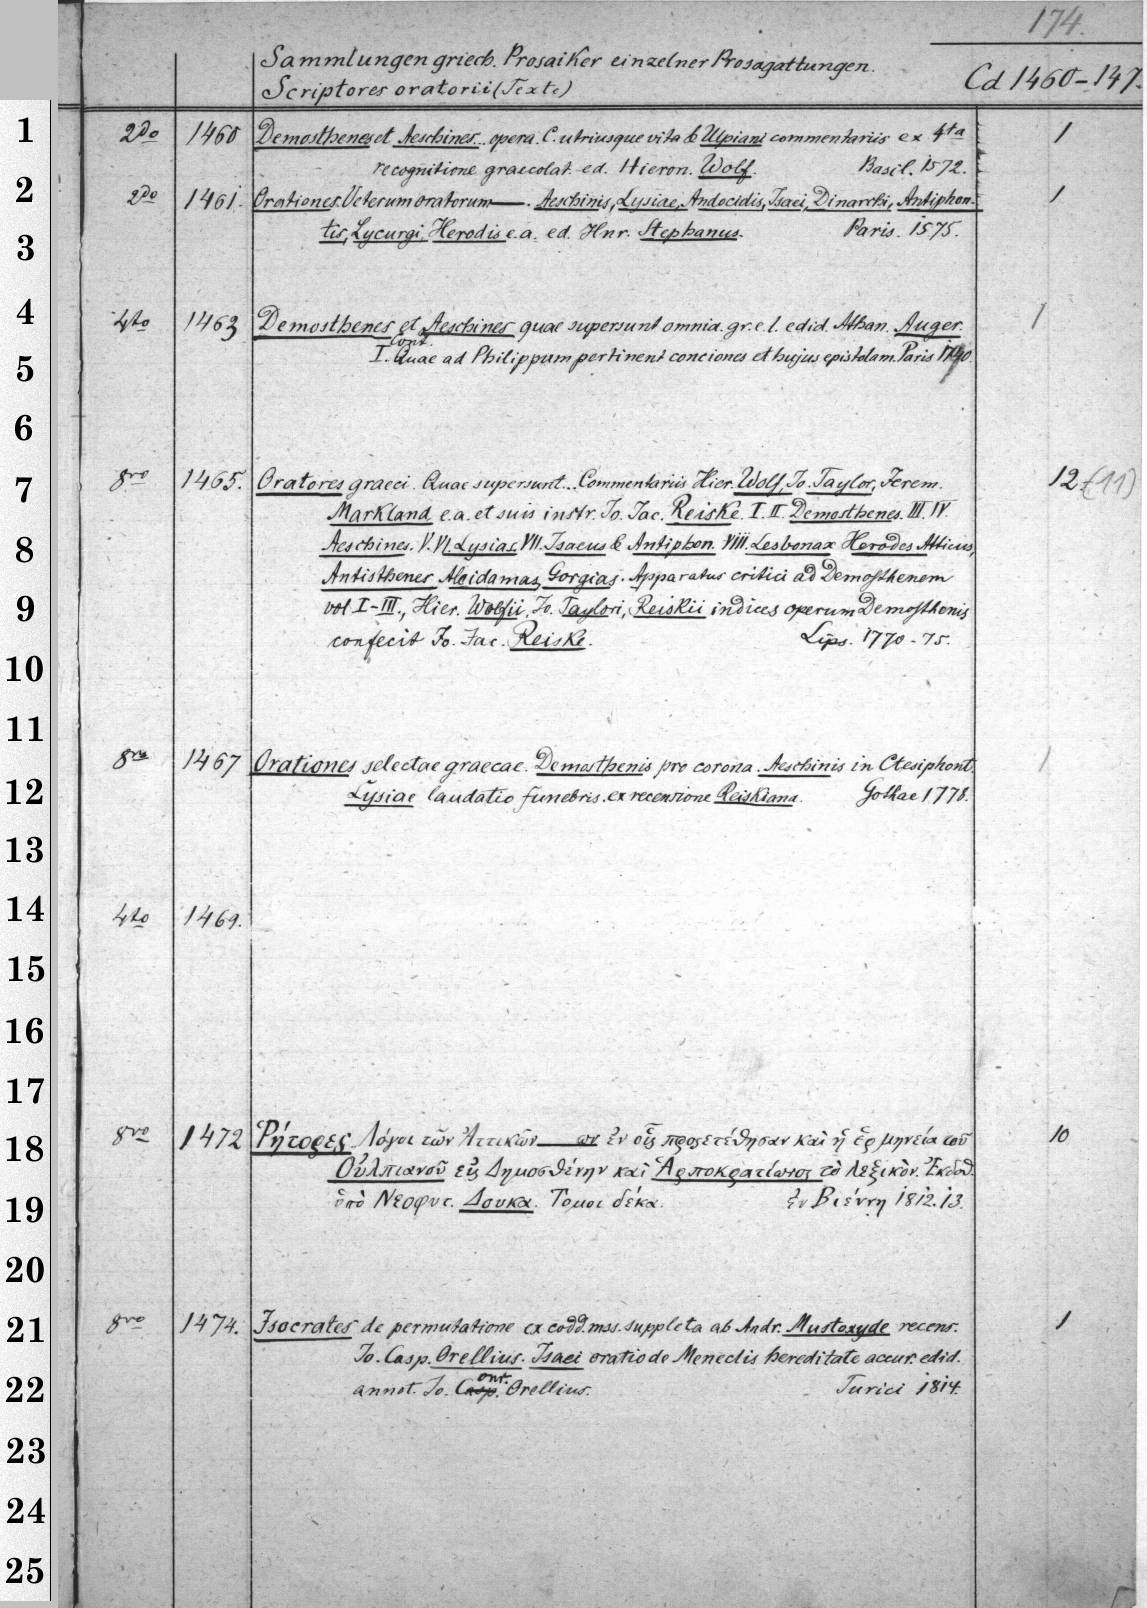 174.
Sammlungen griech. Prosaiker einzelner Prosagattungen.
Scriptores oratorii (Texte)
Cd 1460-147.
1
2do 1460 Demosthenes et Aeschines.. opera. C. utriusque vita & Ulpiani commentariis ex 4ta 1
recognitione graecolat. ed. Hieron. Wolf. Basil. 1572.
2
2do 1461. Orationes. Veterum oratorum —. Aeschinis, Lysiae, Andocidis, Isaei, Dinarchi, Antiphon- 1
tis, Lycurgi, Herodis e.a. ed. Hnr. Stephanus. Paris. 1575.
3
4
4to 1463 Demosthenes et Aeschines quae supersunt omnia. gr. e. l. edid. Athan. Auger. 1
cont.
I. Quae ad Philippum pertinent conciones et hujus epistolam. Paris 1790
5
6
7
8vo 1465. Oratores graeci. Quae supersunt... Commentariis Hier. Wolf, Jo. Taylor, Jerem. 12 (11)
Markland e.a. et suis instr. Jo. Jac. Reiske. I. II. Demosthenes. III. IV.
8
Aeschines. V. VI. Lysias. VII. Isaeus & Antiphon. VIII. Lesbonax Herodes Atticus,
Antisthenes Alcidamas, Gorgias. Apparatus critici ad Demosthenem
9
vol. I-III., Hier. Wolfii, Jo. Taylori, Reiskii indices operum Demosthenis
confecit Jo. Jac. Reiske. Lips. 1770-75.
10
11
8vo 1467 Orationes selectae graecae. Demosthenis pro corona. Aeschinis in Ctesiphont. 1
12
Lysiae laudatio funebris. ex recensione Reiskiana. Gothae 1778.
13
14
4to 1469.
15
16
17
18
8vo 1472 Ῥήτορες Λόγοι τῶν Ἀττικῶν — ἐν οἷς προςετέθησαν καὶ ἡ ἑρμηνεία τοῦ 10
Οὐλπιανοῦ εἰς Δημοσθένην καὶ Ἁρποκρατίωνος τὸ λεξικὸν. Ἐκδοθ.
19
ὑπὸ Νεοφυτ. Δουκα. Τομοι δέκα. ἐν Βιέννῃ 1812.13.
20
21
8vo 1474. Isocrates de permutatione ex codd. mss. suppleta ab Andr. Mustoxyde recens. 1
Jo. Casp. Orellius. Isaei oratio de Meneclis hereditate accur. edid.
22
ont.
annot. Jo. Casp. Orellius. Turici 1814.
23
24
25